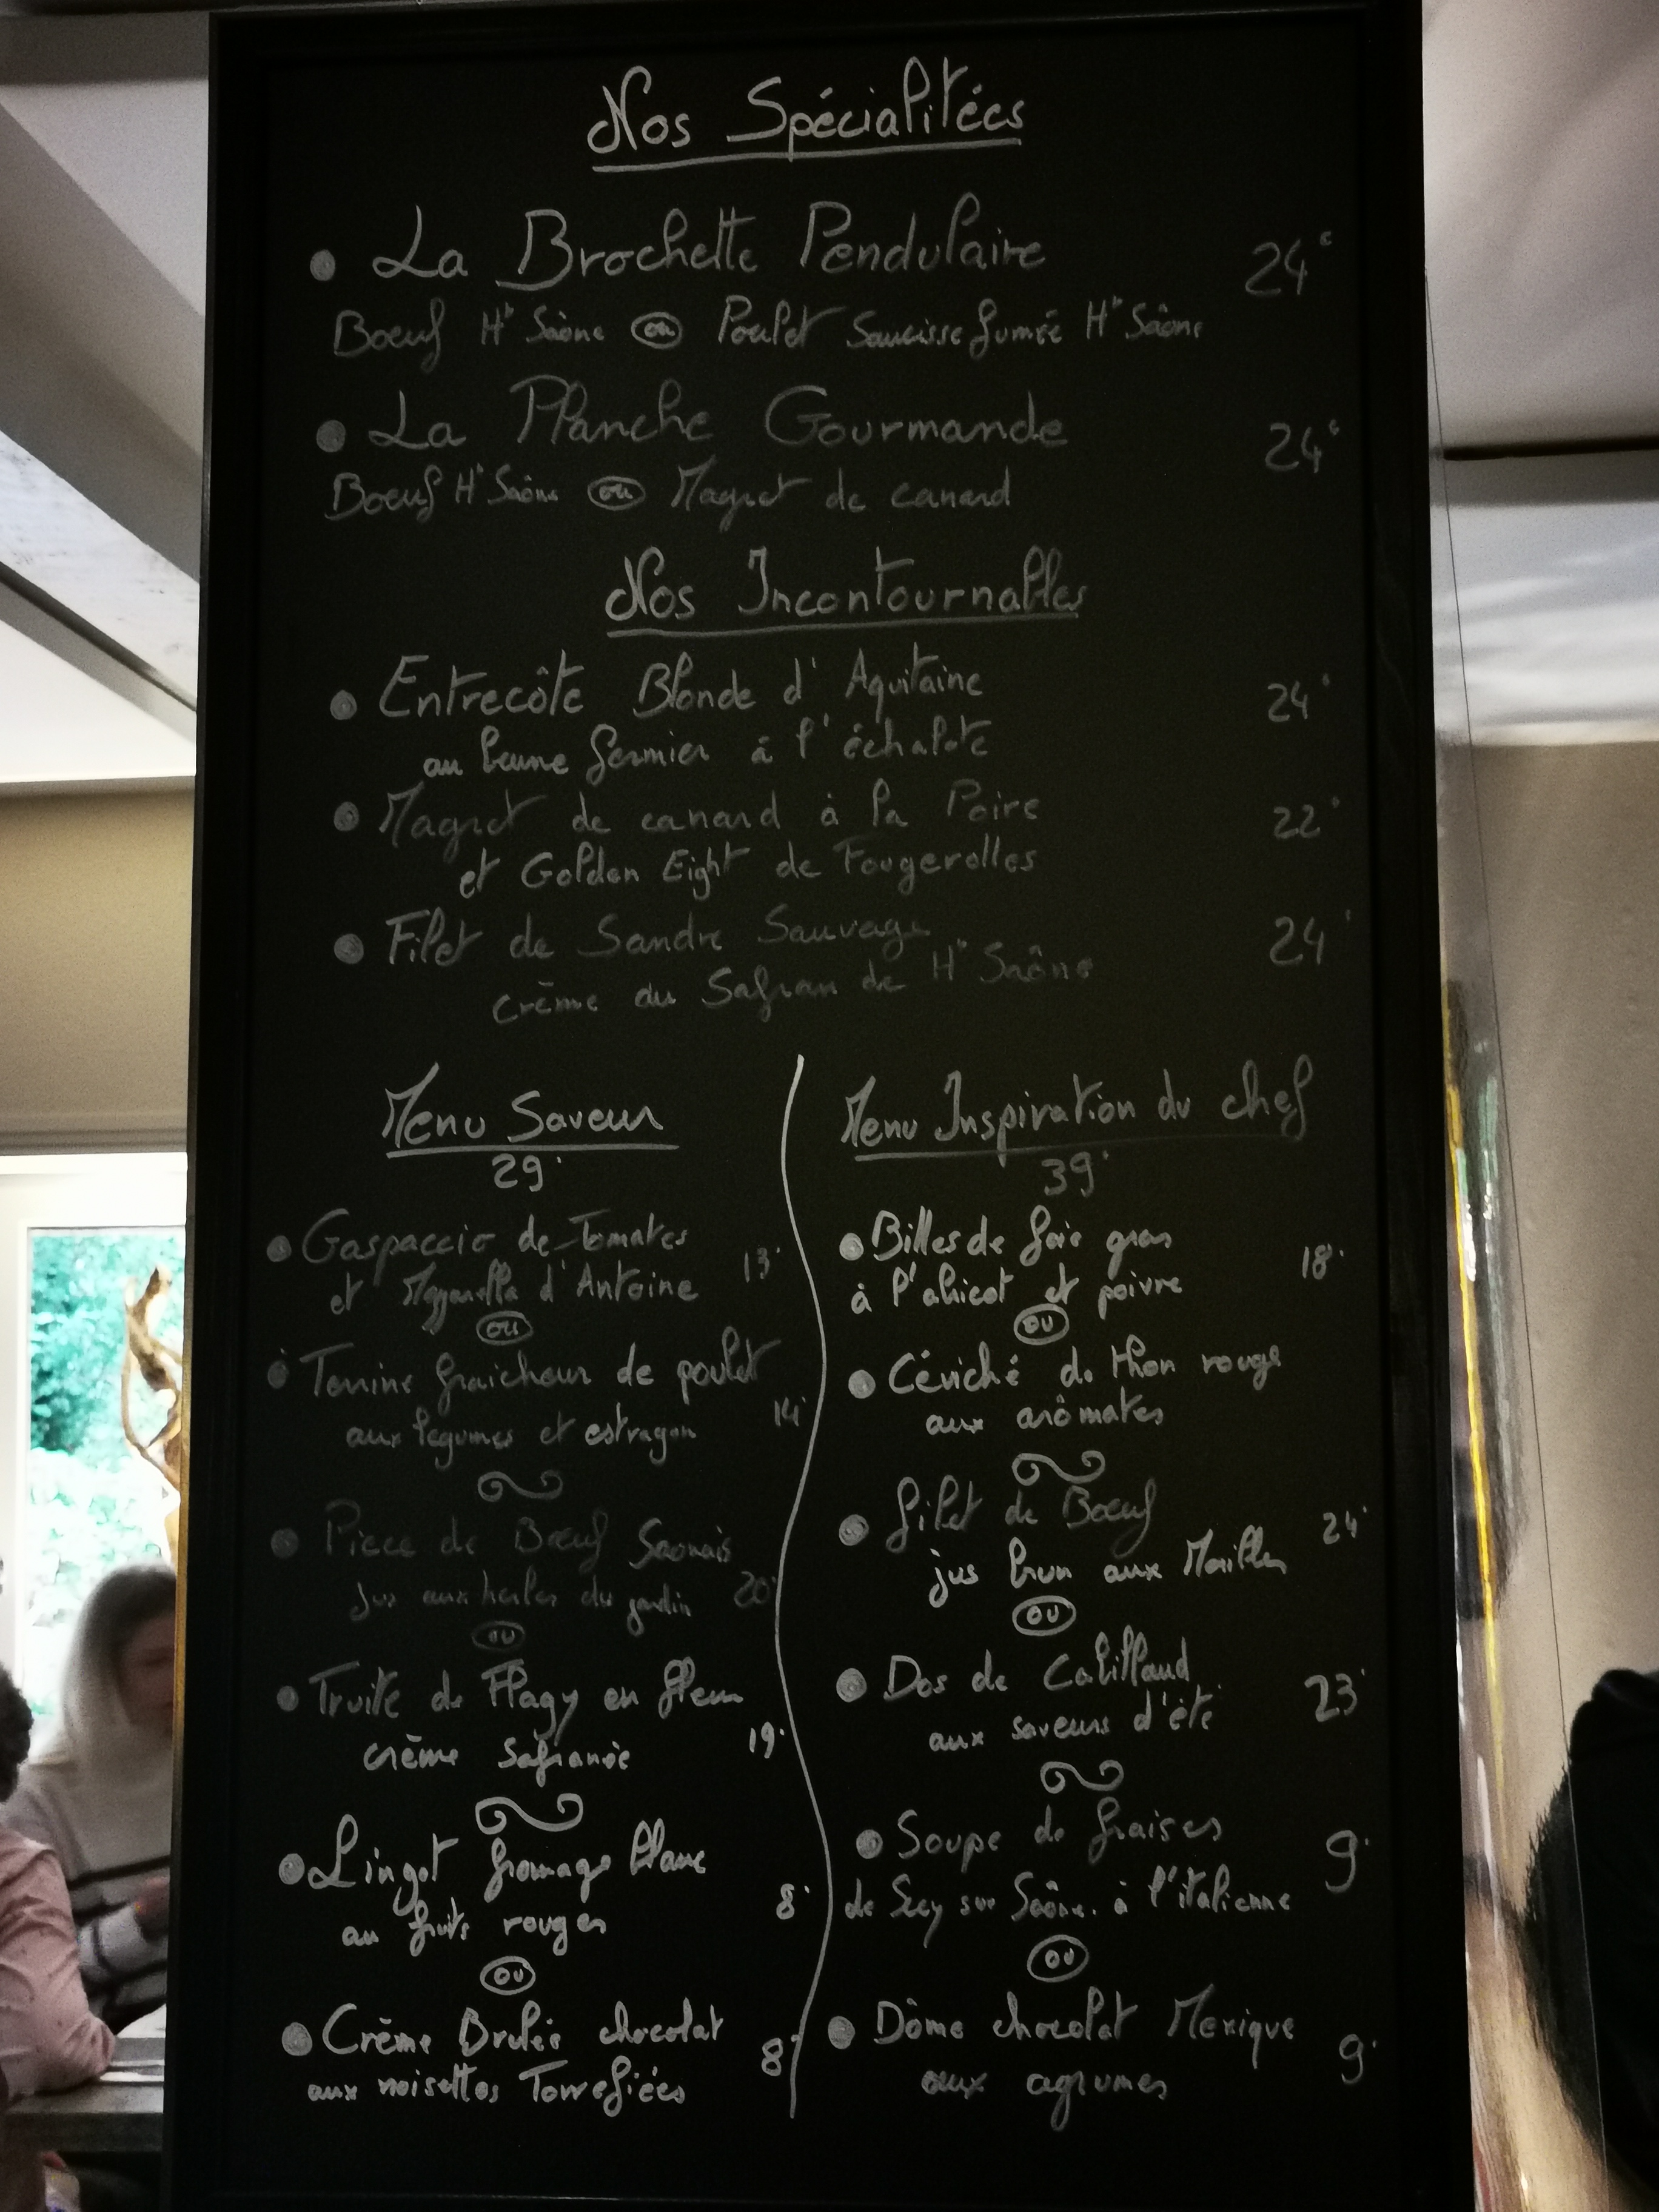 Nos Spécialitées
La Brochette Pendulaire 24€
Boeuf Hte Saône ou Poulet Saucisse fumée Hte Saône
La Planche Gourmande 24€
Boeuf Hte Saône ou Magret de canard
Nos Incontournables
Entrecôte Blonde d'Aquitaine 24
au beurre fermier à l'échalote
Magret de canard à la Poire 22
et Golden Eight de Fougerolles
Filet de Sandre Sauvage 24
crème au Safran de Hte Saône
Menu Saveur
29
Gaspaccio de Tomates
et Mozzarella d'Antoine 13
ou
Terrine fraicheur de poulet
aux légumes et estragon 14
Piece de Bœuf Saonais
Jus aux herbes du jardin 20
ou
Truite de Flagy en fleur
crème Safranée 19
Lingot fromage blanc
au fruits rouges 8
ou
Crème Brulée chocolat
aux noisettes Torrefiées 8
Menu Inspiration du chef
39
Billes de foie gras
à l'abicot et poivre 18
ou
Céviché de thon rouge
aux arômates
filet de Bœuf
jus brun aux Morilles 24
ou
Dos de Cabillaud
aux saveurs d'été 23
Soupe de fraises
de Scey sur Saône à l'italienne 9
ou
Dôme chocolat Mexique
aux agrumes 9